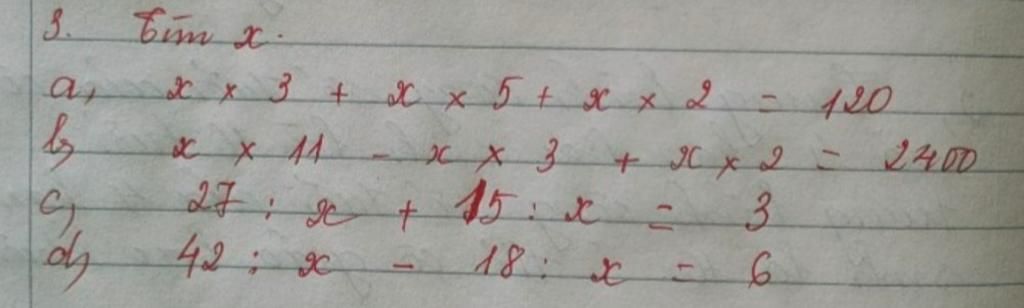 3. Tìm x.
a, x × 3 + x × 5 + x × 2 = 120
b, x × 11 - x × 3 + x × 2 = 2400
c, 27 : x + 15 : x = 3
d, 42 : x - 18 : x = 6